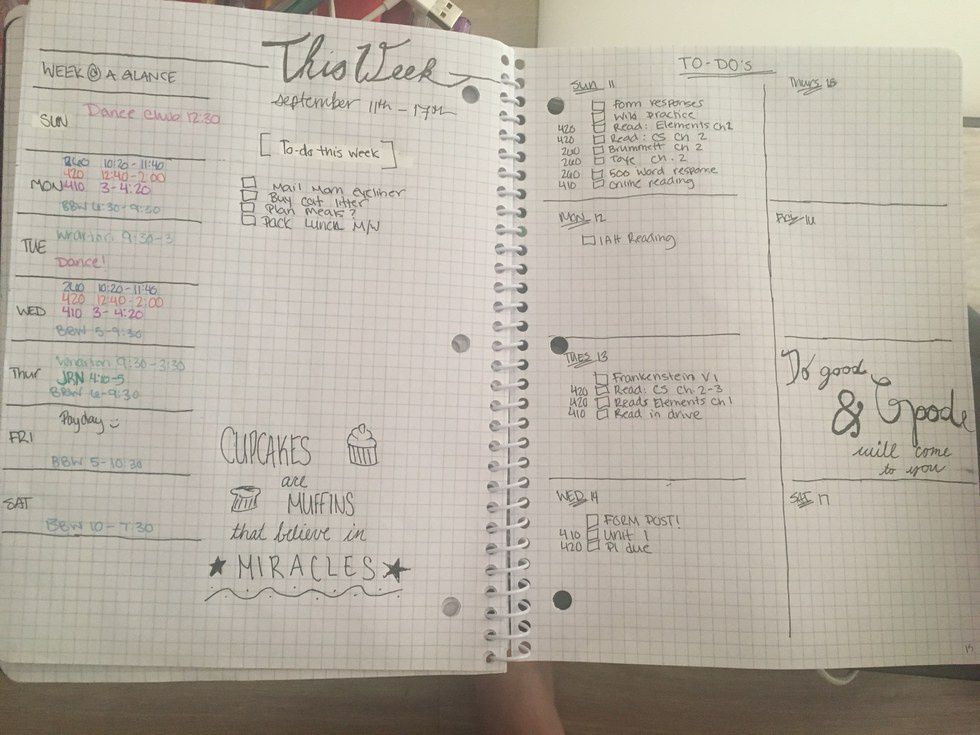 This Week
september 11th - 17th
WEEK @ A GLANCE
SUN
Dance Club 12:30
MON
260 10:20-11:40
420 12:40-2:00
410 3-4:20
BBW 4:30-9:30
TUE
Wharton 9:30-3
Dance!
WED
260 10:20-11:40
420 12:40-2:00
410 3-4:20
BBW 5-9:30
Thur
Wharton 9:30-3:30
JRN 4:10-5
BBW 6-9:30
FRI
Payday
BBW 5-10:30
SAT
BBW 10-7:30
[To-do this week]
Mail Mom eyeliner
Buy cat litter
Plan meals?
Pack Lunch M/W
CUPCAKES
are
MUFFINS
that believe in
MIRACLES
TO-DO'S
Sun 11
Form responses
Wild Practice
420 Read: Elements Ch2
420 Read: CS Ch. 2
260 Brummett Ch 2
260 Ch. 2
260 500 Word response
410 Online reading
MON 12
IAH Reading
TUES 13
Frankenstein V1
420 Read: CS Ch. 2-3
420 Reads Elements Ch 1
410 Read in drive
WED 14
FORM POST!
410 Unit 1
420 P1 due
Thurs 15
FRI 16
Do good
& Goode
will come
to you
SAT 17
15